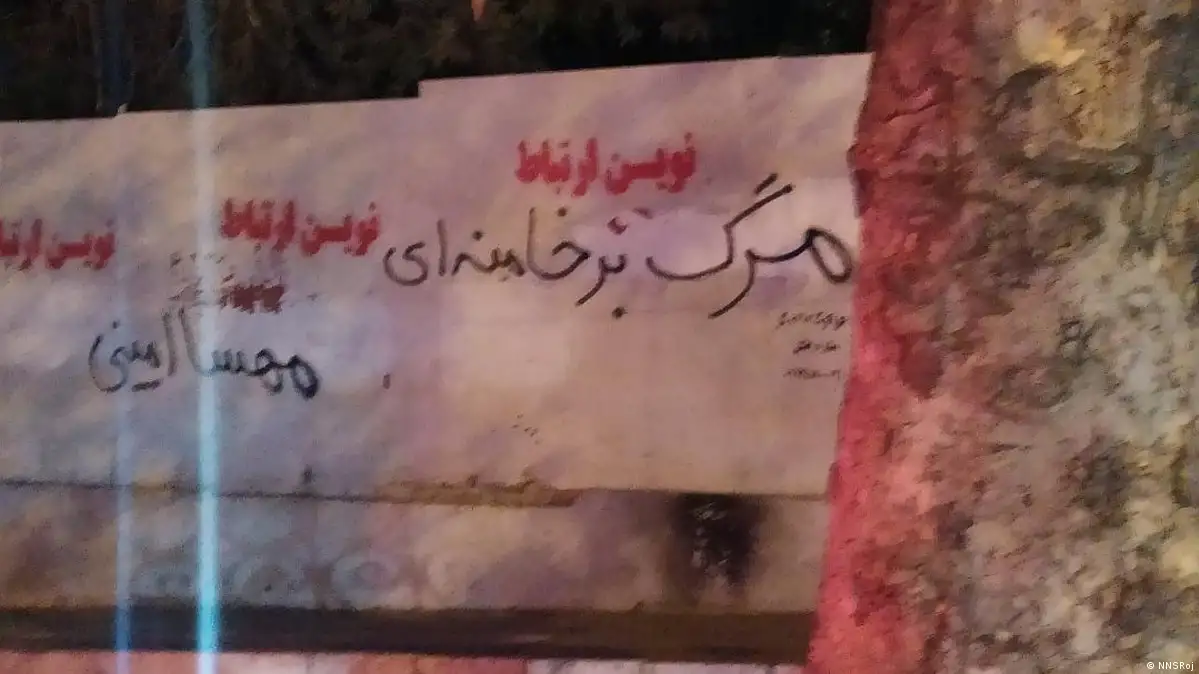 نوین ارتباط
مرگ بر خامنه‌ای
نوین ارتباط
نوین ارتبا
مهسا امینی
© NNSRoj